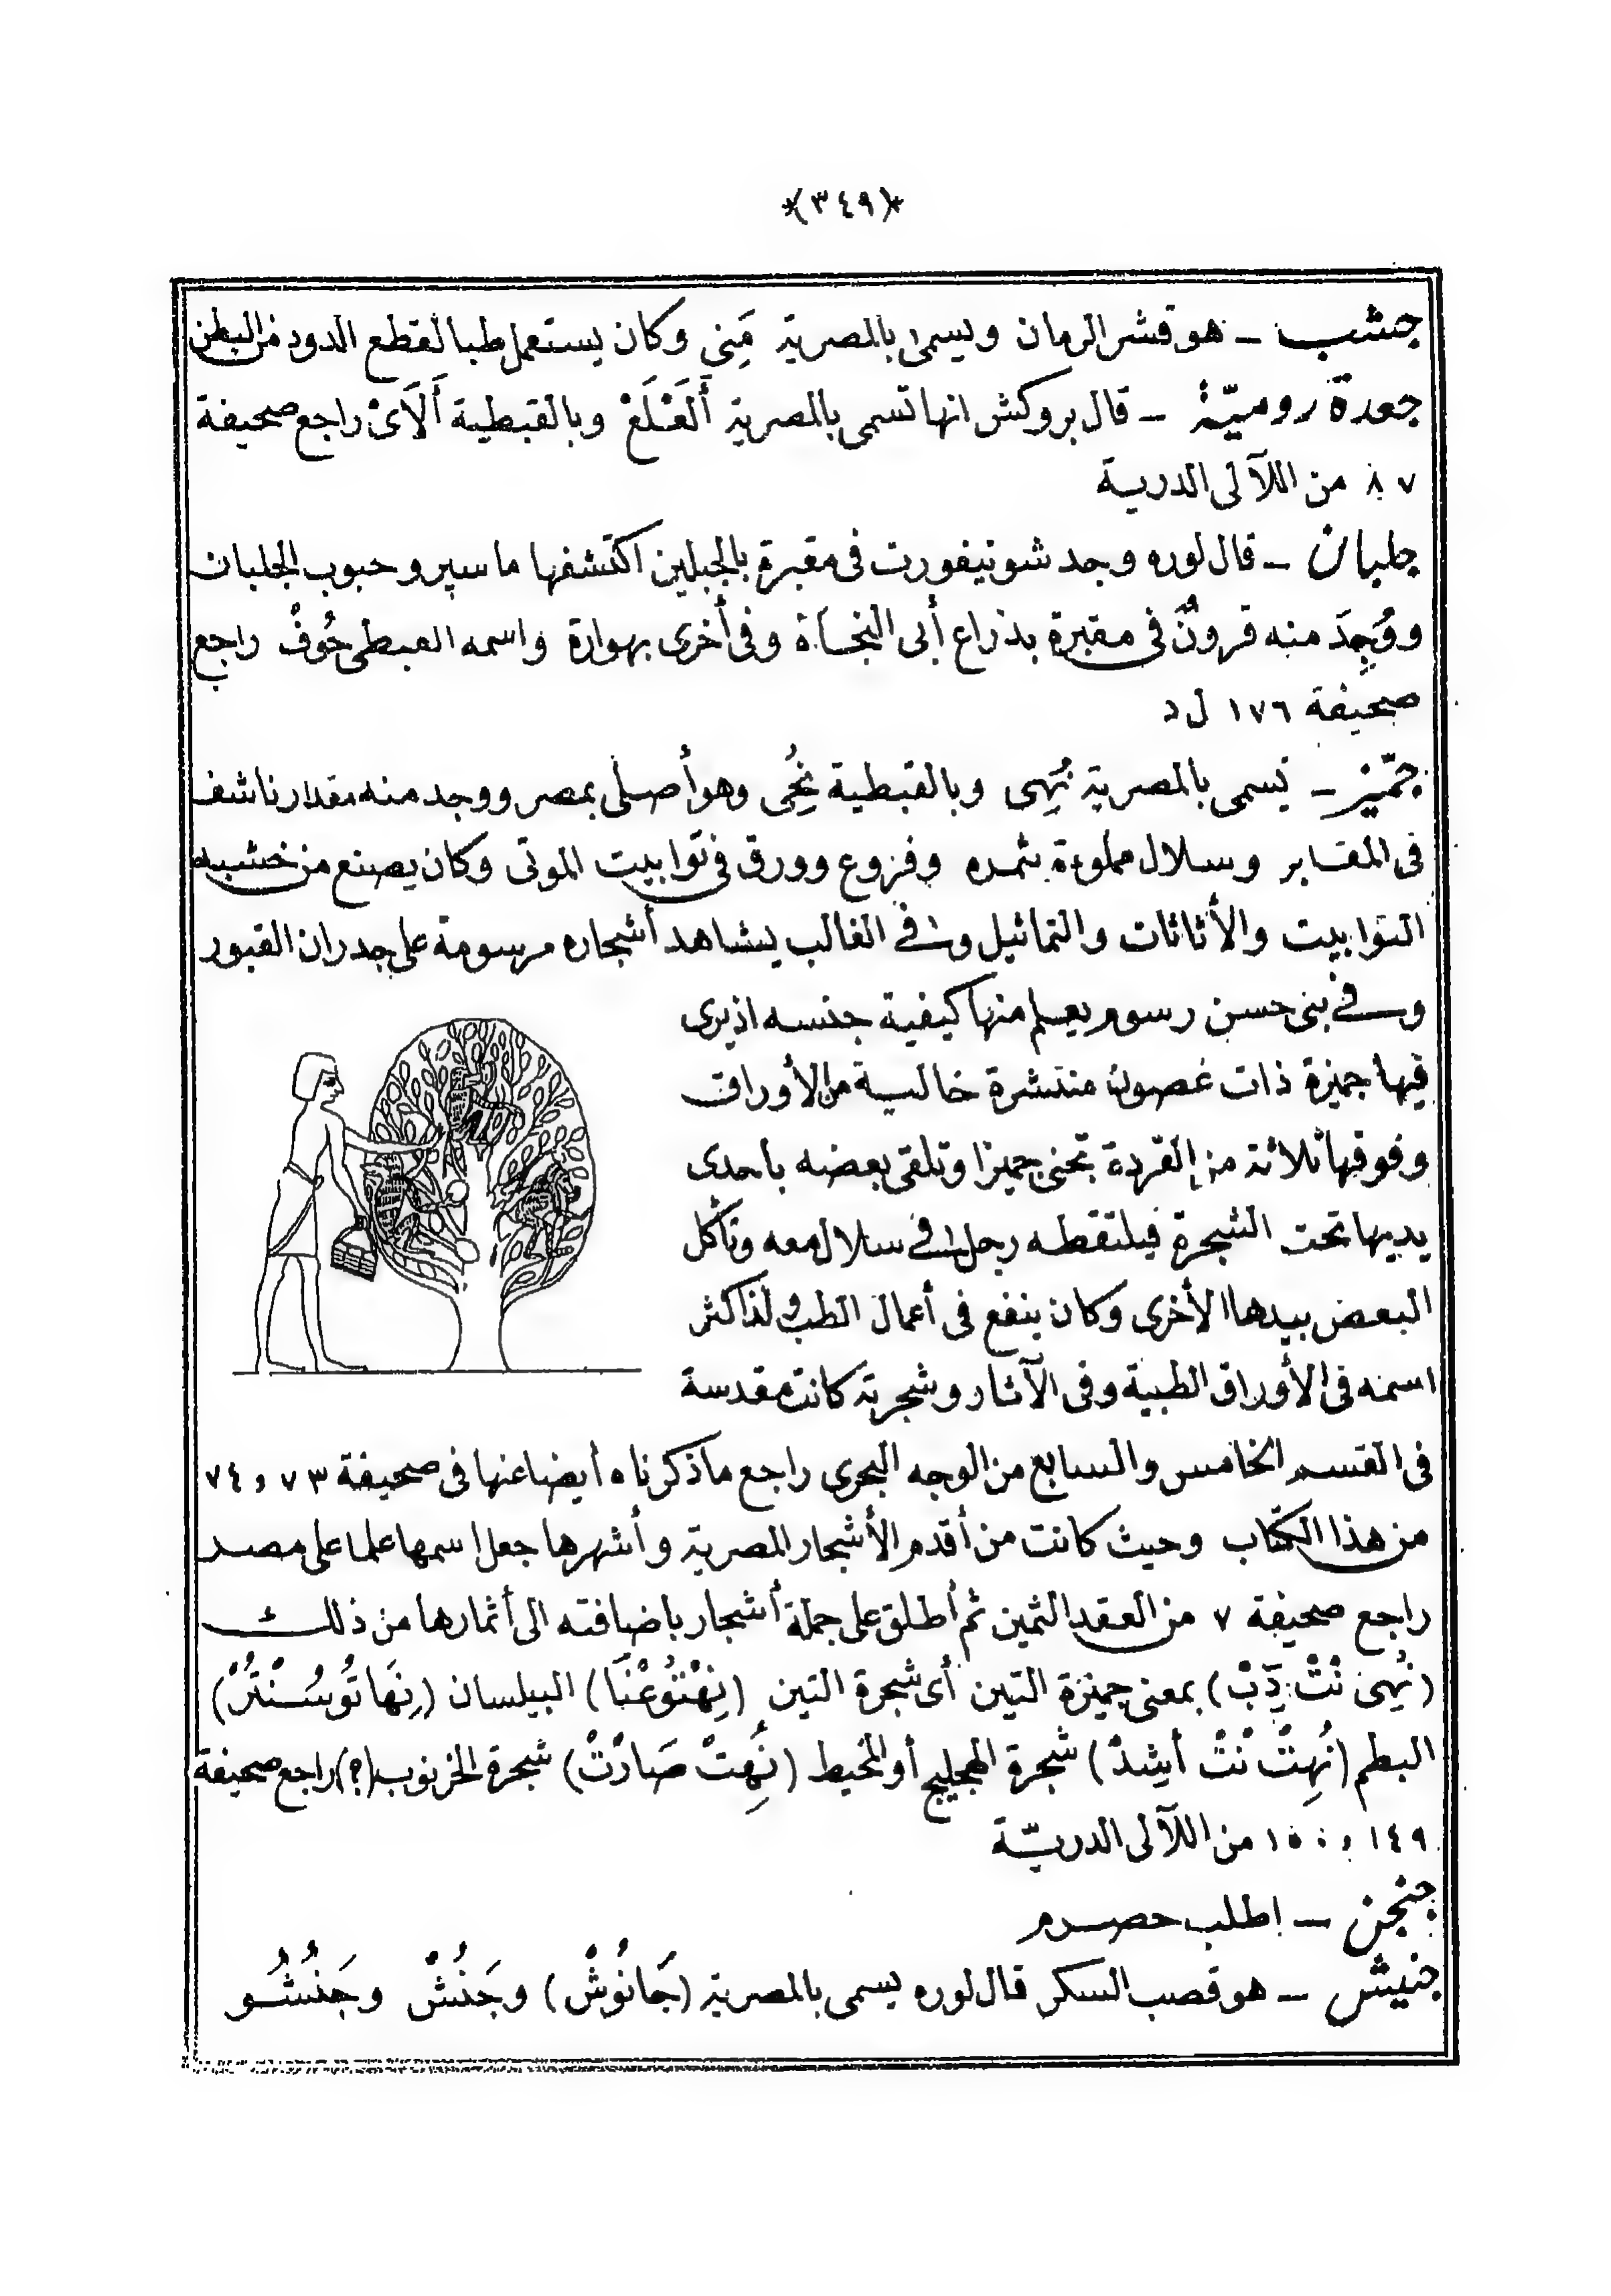 *(٣٤٩)*
جشب ـ هو قشر الرمان ويسمى بالمصرية مَنِي وكان يستعمل طبا لقطع الدود من البطن
جعدة روميّة ـ قال بروكش انها تسمى بالمصرية أَلَغْلَغْ وبالقبطية أَلَائ راجع صحيفة
٨٧ من اللآلى الدرية
جلبان ـ قال لوره وجد شونيفورت فى مقبرة بالجبلين اكتشفها ماسپرو حبوب الجلبان
ووُجِدَ منه قرونٌ فى مقبرة بذراع أبى النجاة وفى أخرى بهوارة واسمه القبطى حُوفْ راجع
صحيفة ١٧٦ ل د
جمّيز ـ تسمى بالمصرية نُهِى وبالقبطية نُحِى وهو أصلى بمصر ووجد منه مقدار ناشف
فى المقابر وسلال مملوءة بثمره وفروع وورق فى توابيت الموتى وكان يصنع من خشبه
التوابيت والأثاثات والتماثيل وفى الغالب يشاهد أشجاره مرسومة على جدران القبور
وفى بنى حسن رسوم يعلم منها كيفية جنسه اذ يرى
فيها جميزة ذات غصون منتشرة خالية من الأوراق
وفوقها ثلاثة من القردة تجنى جميزا وتلقى بعضه باحدى
يديها تحت الشجرة فيلتقطه رجل فى سلال معه وتأكل
البعض بيدها الأخرى وكان ينفع فى أعمال الطب ولذا كثر
اسمه فى الأوراق الطبية وفى الآثار وشجرته كانت مقدسة
فى القسم الخامس والسابع من الوجه البحرى راجع ما ذكرناه أيضا عنها فى صحيفة ٧٣ و ٧٤
من هذا الكتاب وحيث كانت من أقدم الأشجار المصرية وأشهرها جعل اسمها علما على مصر
راجع صحيفة ٧ من العقد الثمين ثم أطلق على جملة أشجار باضافته الى أثمارها من ذلك
(نُهِى نْتْ دِّبْ) بمعنى جميزة التين أى شجرة التين (نِهْتْنُوعْنَا) البيلسان (نِهَاتُوسُنْتَرْ)
البطم (نُهِتْ نْتْ أَشِدْ) شجرة الهجليج أو المخيط (نُهِتْ صَارْتْ) شجرة الخرنوب (؟) راجع صحيفة
١٤٩ و ١٥٠ من اللآلى الدريّة
جنجن ـ اطلب حصرم
جنيش ـ هو قصب السكر قال لوره يسمى بالمصرية (جَانُوشْ) وجَنُشْ وجَنُشُو